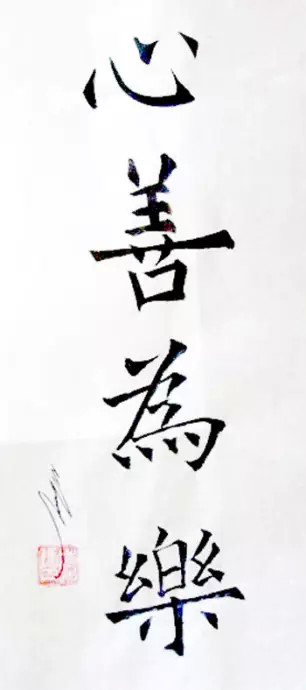 心善為樂